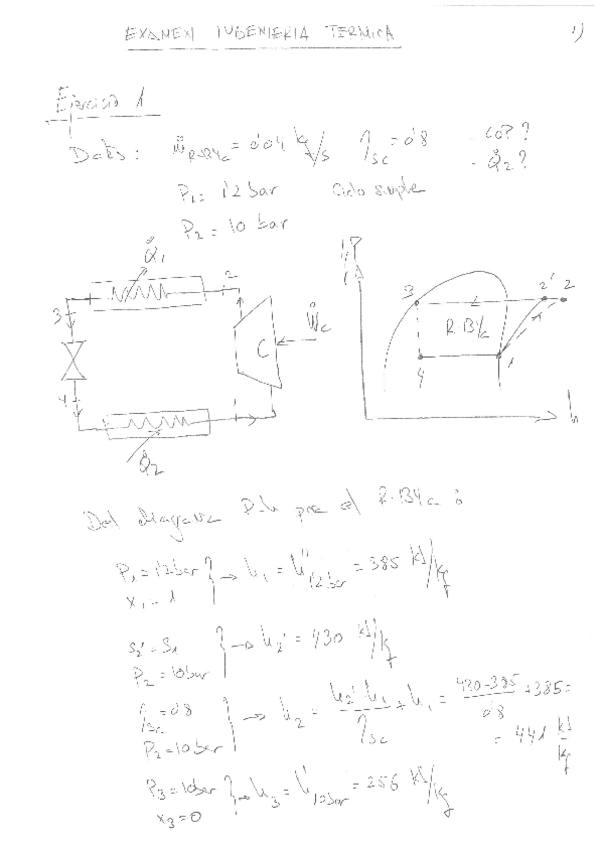 EXAMEN INGENIERIA TERMICA
1)
Ejercicio 1
Datos: ṁ R-134a = 0'04 kg/s η sc = 0'8 - COP?
- Q̇2?
P1 = 1'2 bar Ciclo simple
P2 = 10 bar
Q̇1
2
3
C
Ẇc
4
1
Q̇2
P
3 2' 2
R-134a
4 1
h
Del diagrama P-h para el R-134a:
P1 = 1'2 bar } → h1 = h''1'2bar = 385 kJ/kg
x1 = 1
s2' = s1 } → h2' = 430 kJ/kg
P2 = 10bar
ηsc = 0'8 } → h2 = (h2' - h1)/ηsc + h1 = (430-385)/0'8 + 385 =
P2 = 10bar = 441 kJ/kg
P3 = 10bar } → h3 = h'10bar = 256 kJ/kg
x3 = 0